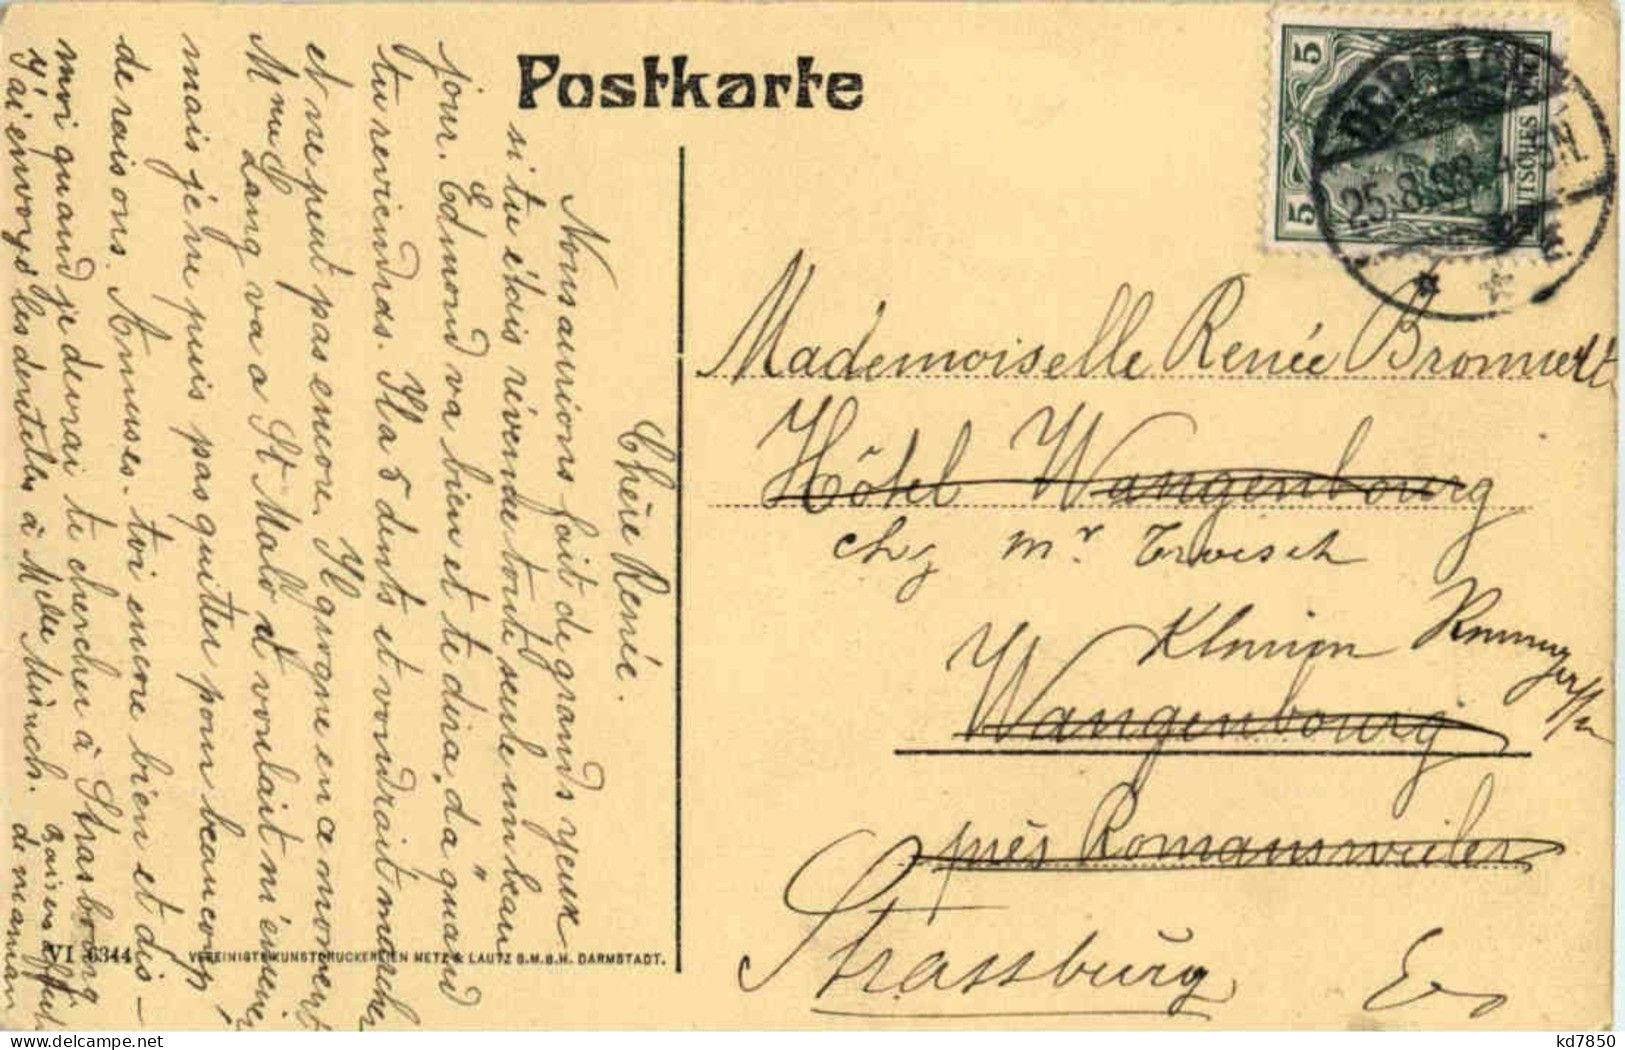 Postkarte
5
5
25.8.08
Chère Renée.
Nous aurions fait de grands yeux
si tu étais révenue toute seule un beau
jour. Edmond va bien et te dira "da" quand
tu reviendras. Il a 5 dents et voudrait marcher
et ne peut pas encore. Il grogne en ce moment
Mme Lang va a St Malo et voulait m'emmener
mais je ne puis pas quitter pour beaucoup
de raisons. Amuses-toi encore bien et dis-
moi quand je devrai te chercher à Strasbourg
J'ai envoyé les dentelles à Melle Münch.
de maman
Mademoiselle Renée
Hôtel Wangenbourg
chz Mr
Wangenbourg
près Romansweiler
Strassburg
VI 6344
VEREINIGTE KUNSTDRUCKEREIEN METZ & LAUTZ G.M.B.H. DARMSTADT.
kd7850